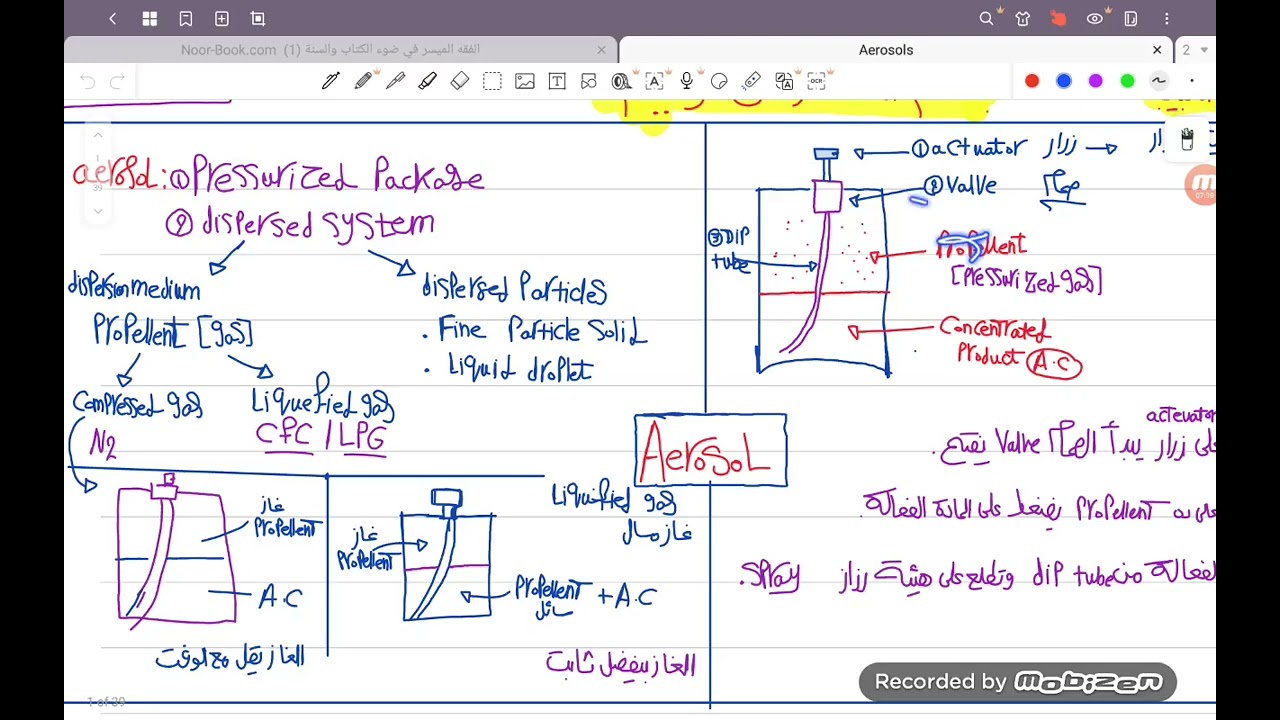 Noor-Book.com الفقه الميسر في ضوء الكتاب والسنة (1)
Aerosols
2
aerosol: ① Pressurized Package
② dispersed system
dispersion medium
Propellent [gas]
Compressed gas
N2
Liquefied gas
CFC / LPG
dispersed Particles
. Fine Particle Solid
. Liquid droplet
① actuator زرار
② Valve صمام
③ DIP tube
Propellent
[Pressurized gas]
Concentrated
Product A.C
AeroSoL
غاز
Propellent
A.C
الغاز بيقل مع الوقت
Liquified gas
غاز مسال
غاز
Propellent
Propellent + A.C
سائل
الغاز بيفضل ثابت
actevator
زرار يبدأ الصمام Valve يفتح.
Propellent يضغط على المادة الفعالة.
من dip tube وتطلع على هيئة رزاز SPray.
1 of 39
39
07:10
Recorded by mobizen